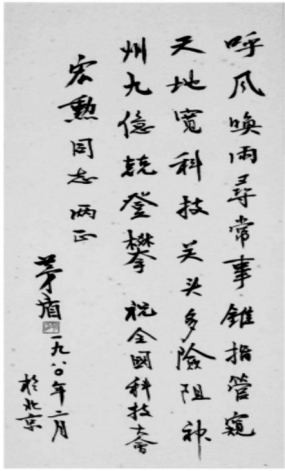 呼风唤雨寻常事锥指管窥
天地宽科技关头多險阻神
州九億競登攀 祝全國科技大會
宏勲同志両正
茅盾
一九八〇年二月
於北京